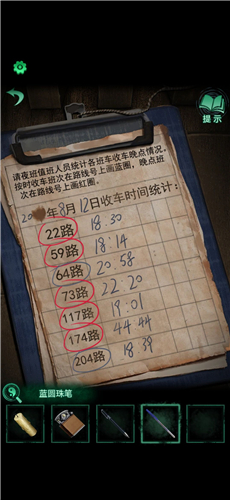 提示
请夜班值班人员统计各班车收车晚点情况,
按时收车班次在路线号上画蓝圈,晚点班
次在路线号上画红圈。
年8月12日收车时间统计:
22路 18:30
59路 18:14
64路 20:58
73路 22 20
117路 19:01
174路 44 44
204路
蓝圆珠笔